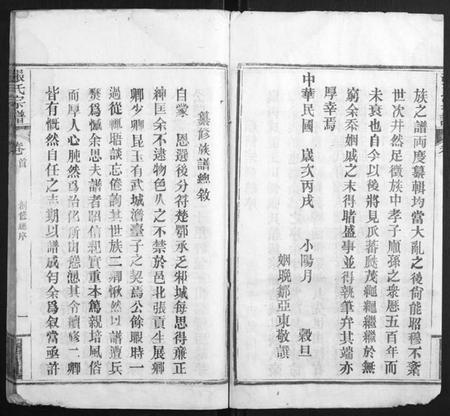 族之譜兩度纂輯均當大亂之後尙能昭穆不紊
世次井然足徵族中孝子順孫之衆歷五百年而
未衰也自今以後將見瓜蕃瓞茂繩繩繼繼於無
窮余忝姻戚之末得睹盛事並得執筆弁其端亦
厚幸焉
中華民國 歲次丙戌 小陽月 穀旦
姻晩都亞東敬譔
張氏宗譜 卷首 創舊總序 一
纂修族譜總敘
自蒙 恩選後分符楚鄂承乏邾城每思得廉正
紳匡余不逮物色人之不禁於邑北張貢生展卿
卿少卿昆玉有武城澹臺子之契焉公餘暇時一
過從輒培談忘倦詢其世族二卿愀然以譜遭兵
燹爲憾余思夫譜者昭信紀實重本篤親培風俗
而厚人心肫然爲治化所出慫慂其令續修二卿
皆有慨然自任之志期以譜成句余爲敘當亟許